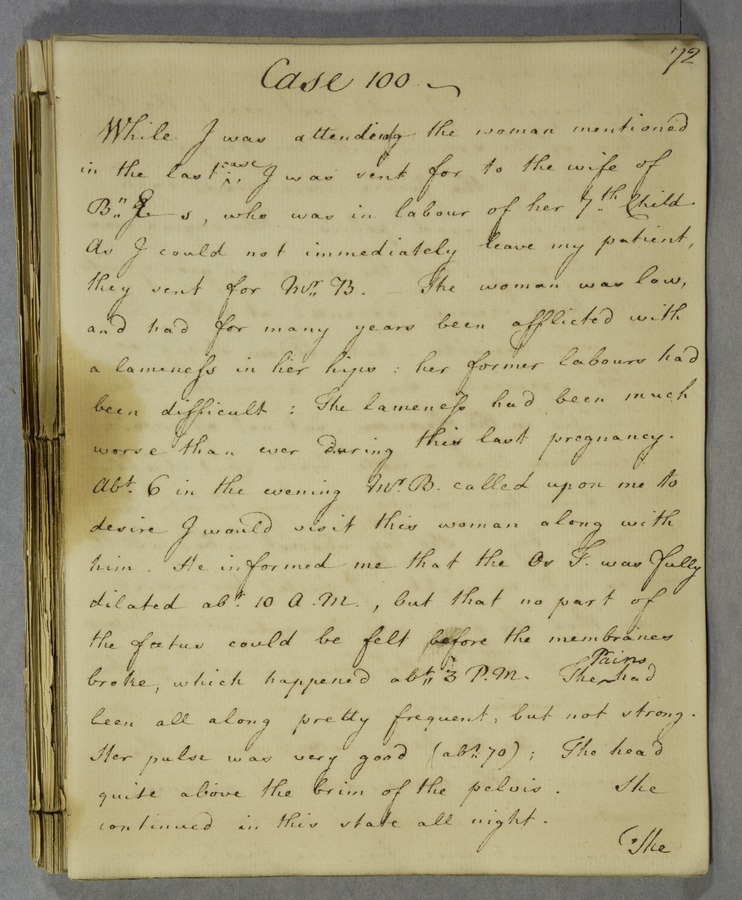 72
Case 100
While I was attending the woman mentioned
in the last case I was sent for to the wife of
Bn s, who was in labour of her 7th Child.
As I could not immediately leave my patient,
they sent for Mr. B. — The woman was low,
and had for many years been afflicted with
a lameness in her hips : her former labours had
been difficult : The lameness had been much
worse than ever during this last pregnancy.
Abt. 6 in the evening Mr. B. called upon me to
desire I would visit this woman along with
him. He informed me that the Os T. was fully
dilated abt. 10 A.M., but that no part of
the fœtus could be felt before the membranes
broke, which happened abt. 3 P.M. The Pains had
been all along pretty frequent, but not strong.
Her pulse was very good (abt. 70) ; The head
quite above the brim of the pelvis. She
continued in this state all night.
(The